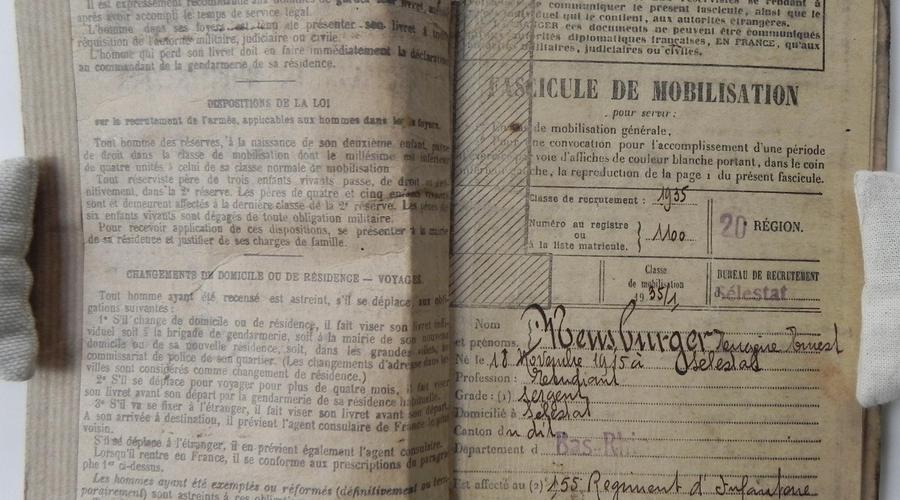 Il est expressément recommandé aux hommes de garder leur livret, même
après avoir accompli le temps de service légal.
L'homme dans ses foyers est tenu de présenter son livret à toute
réquisition de l'autorité militaire, judiciaire ou civile.
L'homme qui perd son livret doit en faire immédiatement la déclaration
au commandant de la gendarmerie de sa résidence.
DISPOSITIONS DE LA LOI
sur le recrutement de l'armée, applicables aux hommes dans les foyers.
Tout homme des réserves, à la naissance de son deuxième enfant, passe
de droit dans la classe de mobilisation dont le millésime est inférieur
de quatre unités à celui de sa classe normale de mobilisation
Tout réserviste père de trois enfants vivants passe, de droit et défi-
nitivement, dans la 2e réserve. Les pères de quatre et cinq enfants vivants
sont et demeurent affectés à la dernière classe de la 2e réserve. Les pères de
six enfants vivants sont dégagés de toute obligation militaire.
Pour recevoir application de ces dispositions, se présenter à la mairie
de sa résidence et justifier de ses charges de famille.
CHANGEMENTS DE DOMICILE OU DE RÉSIDENCE — VOYAGES.
Tout homme ayant été recensé est astreint, s'il se déplace, aux obli-
gations suivantes :
1° S'il change de domicile ou de résidence, il fait viser son livret indi-
viduel soit à la brigade de gendarmerie, soit à la mairie de son nouveau
domicile ou de sa nouvelle résidence, soit, dans les grandes villes, au
commissariat de police de son quartier. (Les changements d'adresse dans les
villes sont considérés comme changement de résidence.)
2° S'il se déplace pour voyager pour plus de quatre mois, il fait viser
son livret avant son départ par la gendarmerie de sa résidence habituelle.
3° S'il va se fixer à l'étranger, il fait viser son livret avant son départ.
A son arrivée à destination, il prévient l'agent consulaire de France le plus
voisin.
S'il se déplace à l'étranger, il en prévient également l'agent consulaire.
Lorsqu'il rentre en France, il se conforme aux prescriptions du paragra-
phe 1er ci-dessus.
Les hommes ayant été exemptés ou réformés (définitivement ou tem-
porairement) sont astreints à ces
communiquer le présent fascicule, ainsi que le
individuel qui le contient, aux autorités étrangères.
ces documents ne peuvent être communiqués
autorités diplomatiques françaises, EN FRANCE, qu'aux
militaires, judiciaires ou civiles.
FASCICULE DE MOBILISATION
pour servir :
de mobilisation générale,
une convocation pour l'accomplissement d'une période
voie d'affiches de couleur blanche portant, dans le coin
gauche, la reproduction de la page 1 du présent fascicule.
Classe de recrutement : 1935
Numéro au registre
ou
à la liste matricule. } 1100
20 RÉGION.
Classe
de mobilisation
1935/1
BUREAU DE RECRUTEMENT
d Sélestat
Nom
et prénoms. } Ernest
Né le 18 Novembre 1915 à Sélestat
Profession : Etudiant
Grade : (1) Sergent
Domicilié à Sélestat
Canton du dit
Département d Bas-Rhin
Est affecté au (2) 155 Regiment d'Infanterie